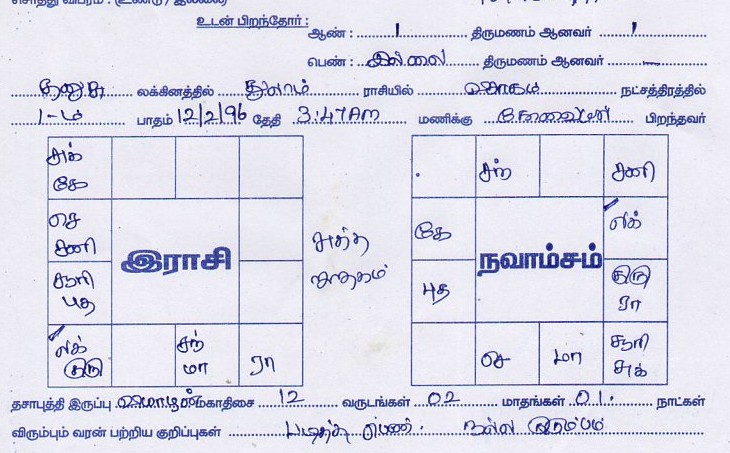 சொத்து விபரம் : (உண்டு / இல்லை)
உடன் பிறந்தோர் :
ஆண் : 1 திருமணம் ஆனவர் 1
பெண் : இல்லை திருமணம் ஆனவர் –
தனுசு லக்கினத்தில் துலாம் ராசியில் நட்சத்திரத்தில்
1-ம் பாதம் 12/2/96 தேதி 3:47AM மணிக்கு பிறந்தவர்
சுக் சந் சனி
கே
செ கே லக்
சனி
இராசி சுத்த ஜாதகம் நவாம்சம்
சூரி புத குரு
புத ரா
லக் சந் ரா செ மா சூரி
குரு மா சுக்
தசாபுத்தி இருப்பு 12 வருடங்கள் 02 மாதங்கள் 01. நாட்கள்
விரும்பும் வரன் பற்றிய குறிப்புகள் படித்த பெண். நல்ல குடும்பம்